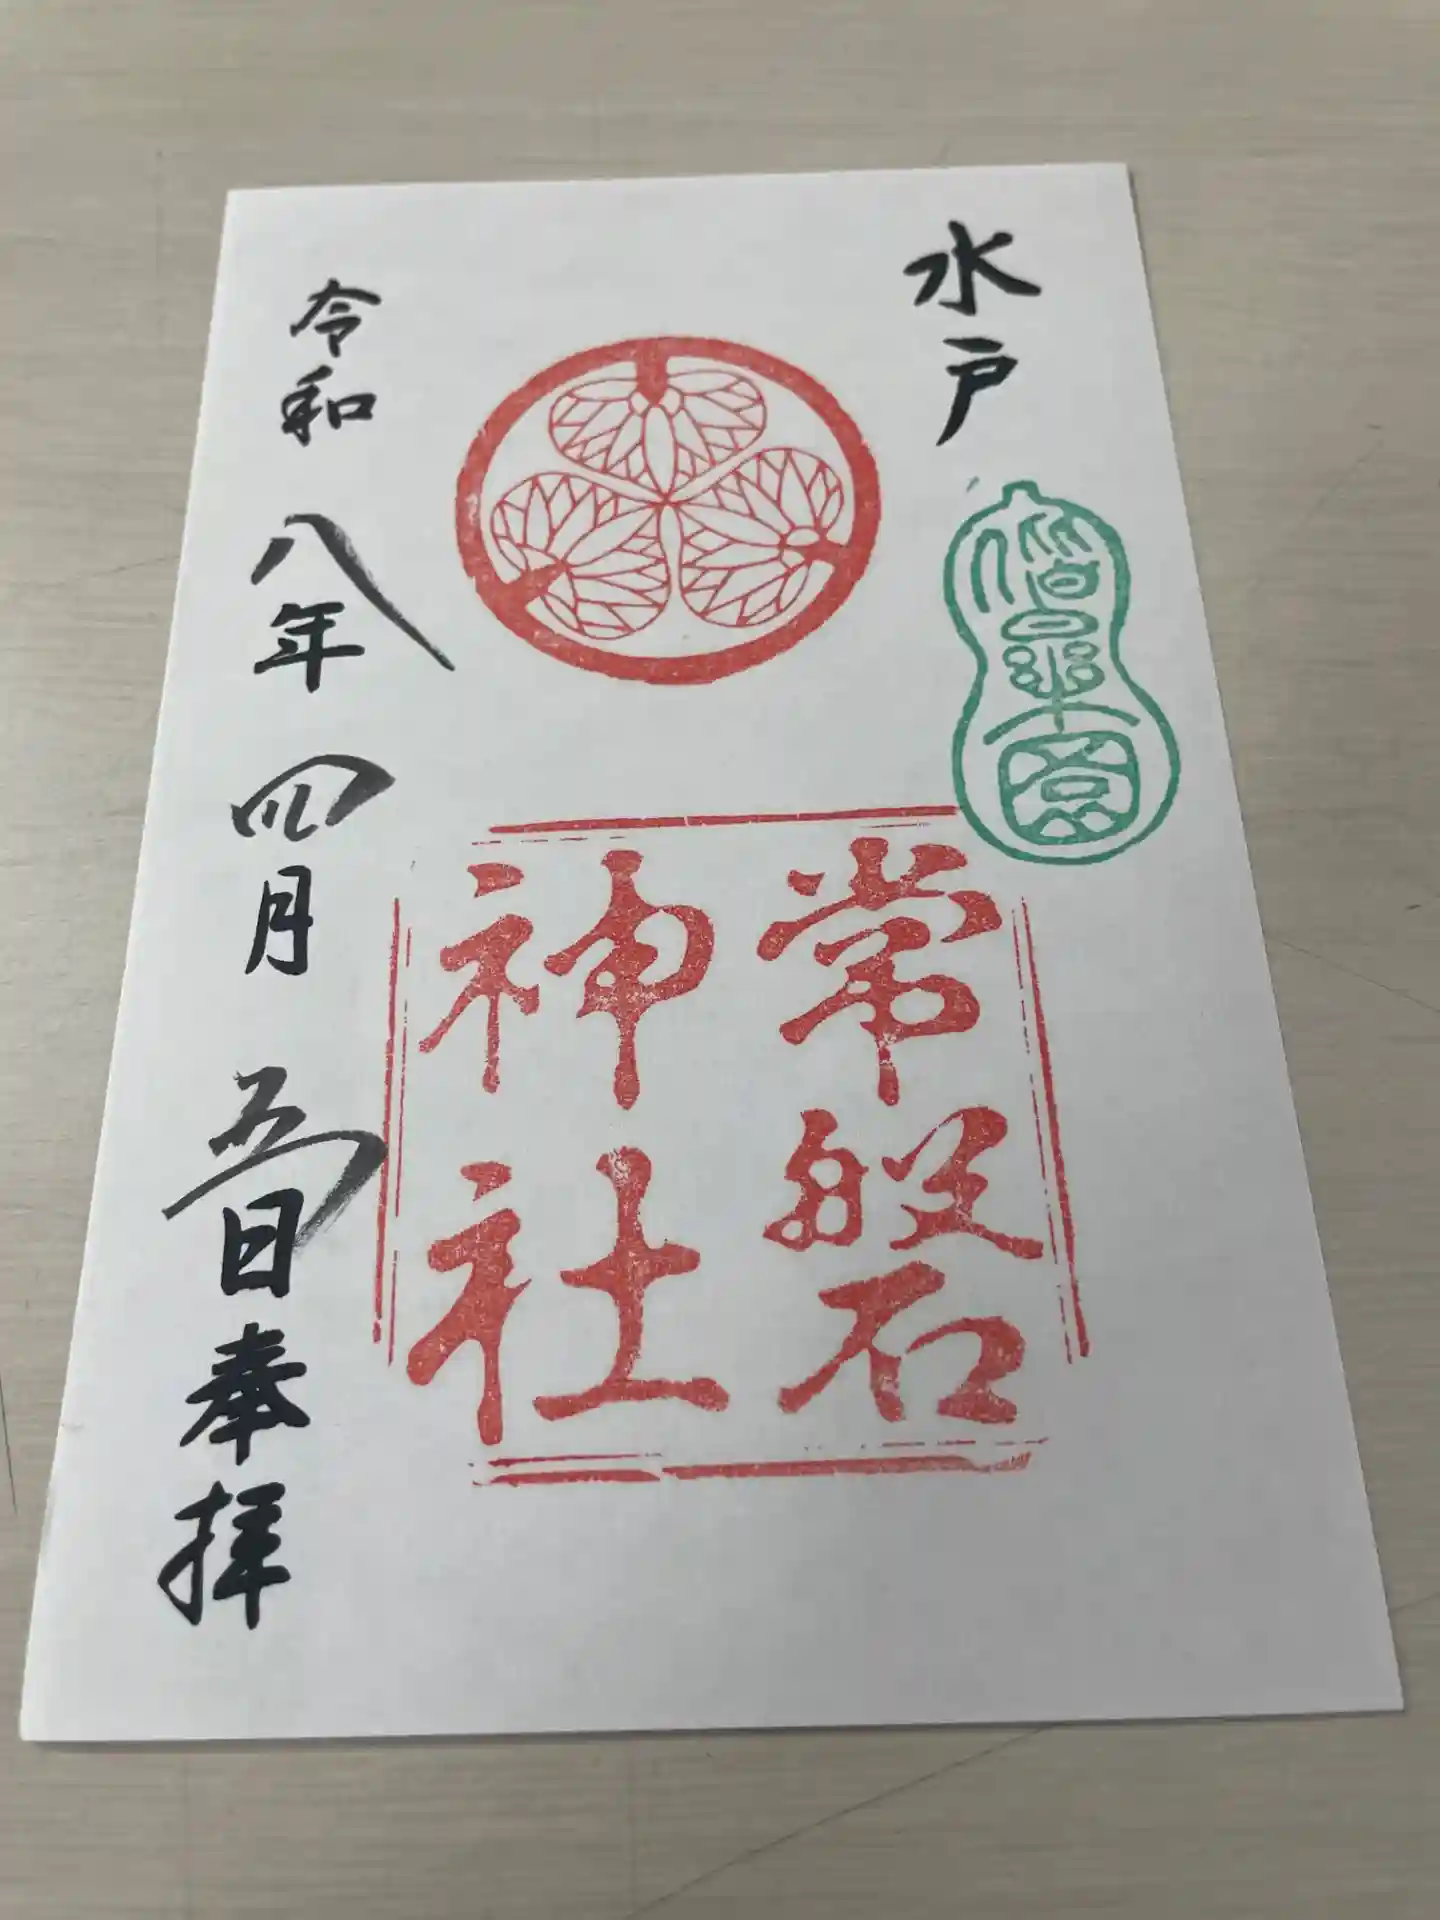 水戸
偕楽園
常磐
神社
令和八年四月五日奉拝